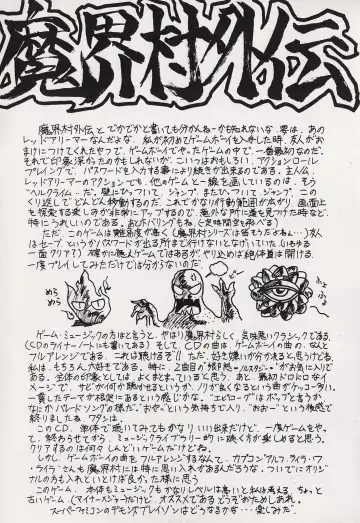 魔界村外伝
魔界村外伝とでかでかと書いても分かんねーかも知れないな。要は、あの
レッドアリーマーなんだよな。私が初めてゲームボーイを入手した時、友人がお
まけにつけてくれたやつで、ゲームボーイでやったゲームの中で、一番最初なのだ。
それで印象深かったのかもしれないが、こいつはおもしろい。アクションロール
プレイングで、パスワードを入力する事により続きが出来るのである。主人公、
レッドアリーマーのアクションでも、他のゲームと一線を画しているのは、そう
"ヘルクライ…だ。壁にひっついて、ジャンプ、またひっついて、ジャンプ、この
くり返しでどんどん移動するのだ。これでかなり行動範囲が広がり、画面上
を探索する楽しみが非常にアップするので、意外な所に道を見つけた時など、
特にうれしいのである。(おっとホバリングもね。空映間空を飛べる)
ただ、このゲームは難易度が高く(魔界村シリーズは皆そうだよねぇ…)友人
はセーブ、というかパスワードが出る所まで行けないとなげいていた(いわゆる
一面クリア?)確かに難入ゲームではあるが、やり込めば絶体道は開ける。
一度プレイしてみただけでは分からないのだ。
めら
めら
ゲーム・ミュージックの方はと言うと、やはり魔界村らしく、気味悪いクラシックである。
(CDのライナーノートにも書いてある) そして、CDの曲は、ゲームボーイの曲の、なんと
フルアレンジである。これは聴けるぞ!!ただ、好き嫌いが分かれると思うけどね。
私は、もちろん大好きである。特に、2曲目の"
ある。全体の印象としては、よくまとまっていると思う。あと、最初ドロドロなイ
メージで、サビが何か聴かせるというか、ノリが良くなるという曲がケッコー多い。
一貫したテーマが根底にあるという感じかな。"エピローグ"はポップと言うか
なにかバレードソングの様だ。"おやっという気持ちで入り、"おおー"という物感で
終りました、ワタシは。
このCD、単体で聴いてみてもかなりいい出来だけど、一度ゲームをやっ
て、終わらせてから、ミュージックライブラリー的に聴く方が楽しめると思う。
クリアするのは何んしんどいゲームだけどね。
しかし、ゲームボーイの曲をフルアレンジするなんて、カプコンアルフ・ライラ・ワ
・ライラさんも魔界村には特に思い入れがあるんだろうな。ついでにオリジ
ナルの方も入れといてほしかった様に思う
このゲーム、本体もミュージックもかなりレベルは高いと私は考える。ちょっと
古いゲーム(マイナー?メジャーだけど)、オススメである。どうぞおためしあれ。
スーパーファミコンのデモンズブレイゾンはどうなるかな…楽しみだ。